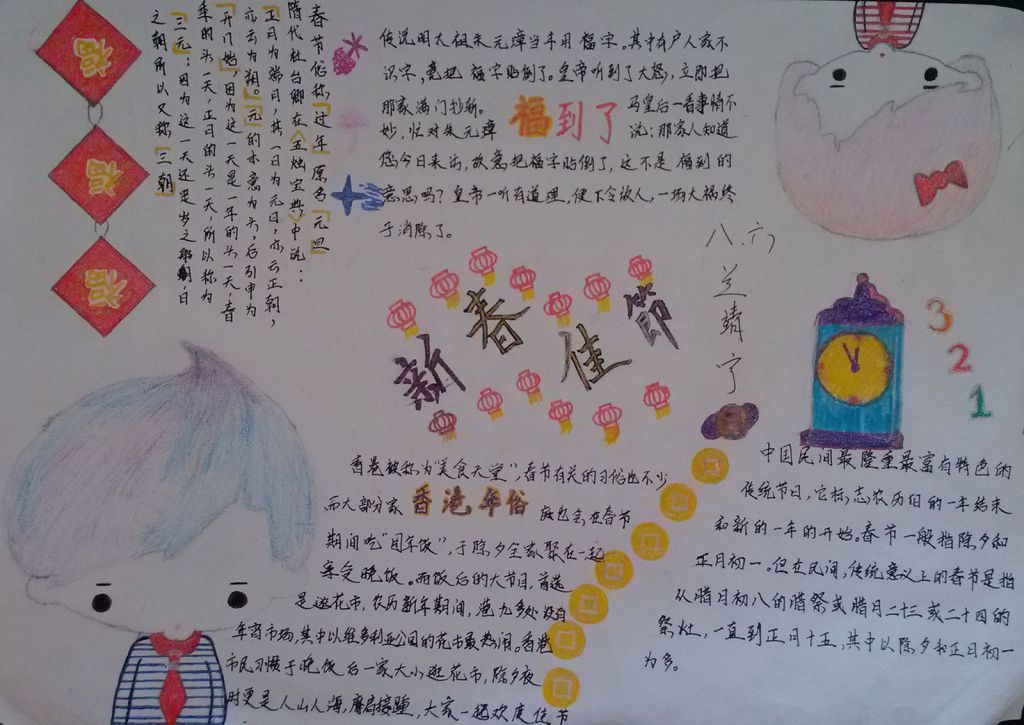 福
福
福
春节俗称「过年」原名「元旦」
隋代杜台卿在《五烛宝典》中说：
正月为端月，其一日为元日，亦云正朝，
亦云为朔。「元」的本意为头，后引申为
「开始」，因为这一天是一年的头一天，春
季的头一天，正月的头一天，所以称为
「三元」；因为这一天还是岁之朝，月
之朝所以又称「三朝」
传说明太祖朱元璋当年用福字。其中有户人家不
识字，竟把福字贴倒了。皇帝听到了大怒，立即把
那家满门抄斩。
马皇后一看事情不
妙，忙对朱元璋
福到了
说：那家人知道
您今日来访，故意把福字贴倒了，这不是福到的
意思吗？皇帝一听有道理，便下令放人，一场大祸终
于消除了。
新春佳節
八.六
兰靖宁
3
2
1
香港被称为"美食天堂"，春节有关的习俗也不少
而大部分家
香港年俗
庭也会在春节
期间吃"团年饭"，于除夕全家聚在一起
享受晚饭。而饭后的大节目，首选
是逛花市，农历新年期间，港九多处设有
年宵市场，其中以维多利亚公园的花市最热闹。香港
市民习惯于晚饭后一家大小逛花市，除夕夜
时更是人山人海，摩肩接踵，大家一起欢度佳节
中国民间最隆重最富有特色的
传统节日，它标志农历旧的一年结束
和新的一年的开始。春节一般指除夕和
正月初一。但在民间，传统意义上的春节是指
从腊月初八的腊祭或腊月二十三或二十四的
祭灶，一直到正月十五，其中以除夕和正月初一
为多。